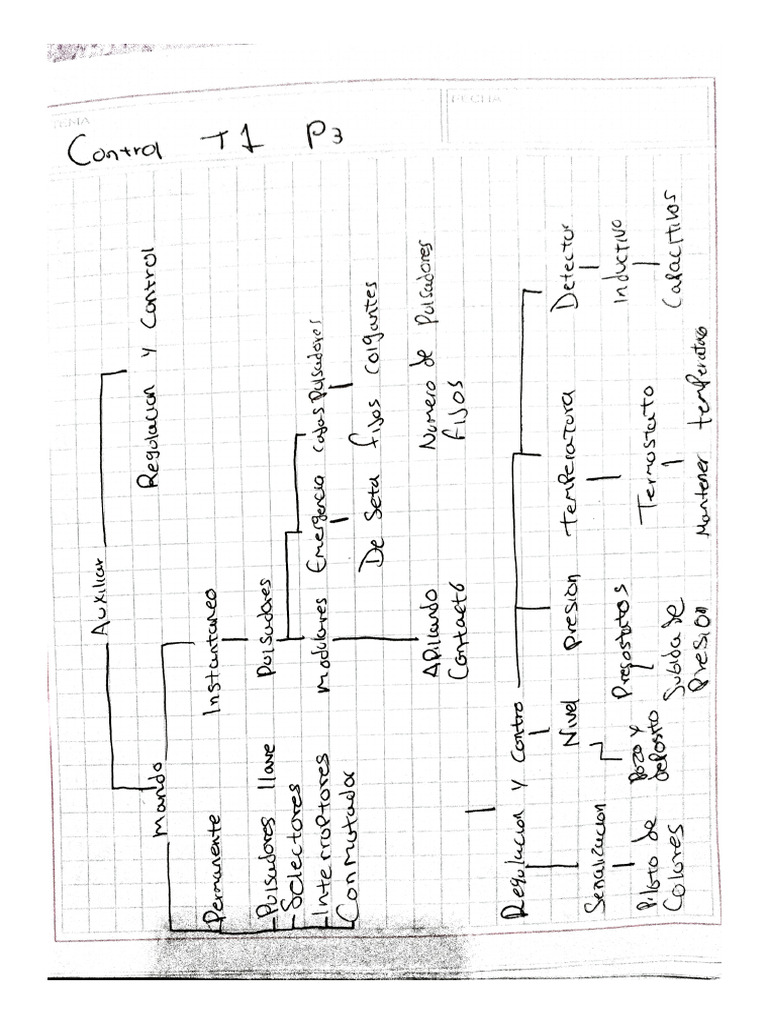 TEMA
FECHA
Control T1 P3
Auxiliar
Mando
Regulacion y Control
Permanente
Instantaneo
Pulsadores llave
Selectores
Interruptores
Conmutador
Pulsadores
Modulares
Emergencia
Cajas Pulsadores
De Seta
Fijos colgantes
Apilando
Contacto
Numero de Pulsadores
Fijos
Regulacion y Contro
Señalizacion
Nivel
Presion
Temperatura
Detector
Piloto de
Colores
Pozo y
deposito
Presostatos
Subida de
Presion
Termostato
Mantener
Inductivo
Capacitivos